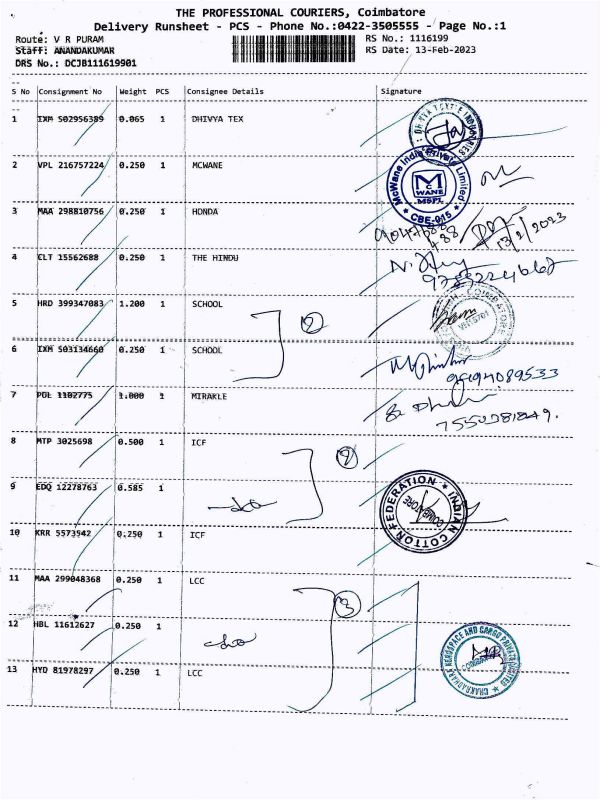 THE PROFESSIONAL COURIERS, Coimbatore
Delivery Runsheet - PCS - Phone No.:0422-3505555 - Page No.:1
Route: V R PURAM RS No.: 1116199
Staff: ANANDAKUMAR RS Date: 13-Feb-2023
DRS No.: DCJB111619901
S No Consignment No Weight PCS Consignee Details Signature
1 IXM 502956389 0.065 1 DHIVYA TEX
2 VPL 216757224 0.250 1 MCWANE
McWane India Private Limited
MC WANE
MSPL
CBE-015
3 MAA 298810756 0.250 1 HONDA
13/2/2023
4 CLT 15562688 0.250 1 THE HINDU
5 HRD 399347083 1.200 1 SCHOOL
2
6 IXM 503134660 0.250 1 SCHOOL
9494089533
7 POL 1102775 1.000 1 MIRAKLE
8 MTP 3025698 0.500 1 ICF
2
9 EDQ 12278763 0.585 1 -do-
INDIAN COTTON FEDERATION
COIMBATORE
10 KRR 5573542 0.250 1 ICF
11 MAA 299048368 0.250 1 LCC
3
12 HBL 11612627 0.250 1 -do-
CHAKRADHARA AEROSPACE AND CARGO PRIVATE LIMITED
13 HYD 81978297 0.250 1 LCC